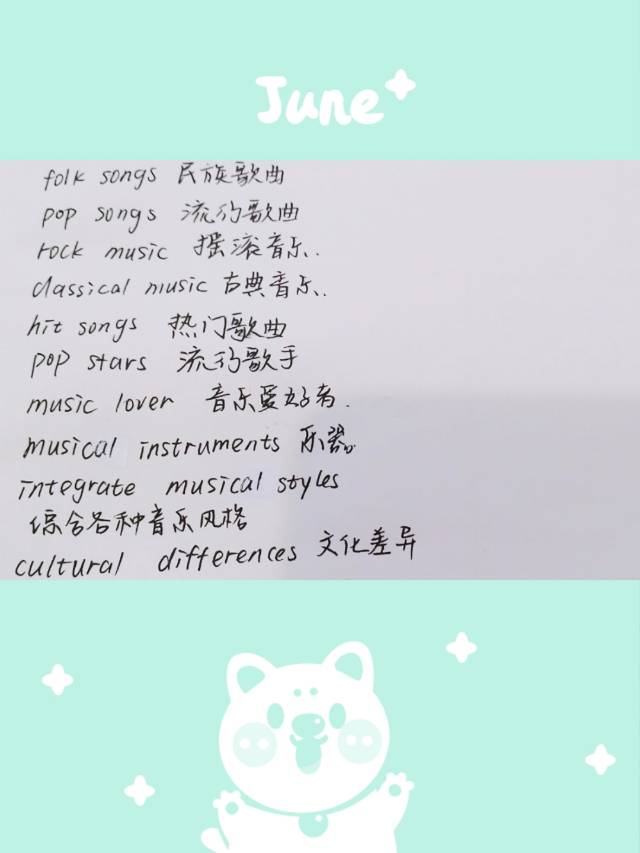 June
folk songs 民族歌曲
pop songs 流行歌曲
rock music 摇滚音乐.
classical music 古典音乐.
hit songs 热门歌曲
pop stars 流行歌手
music lover 音乐爱好者.
musical instruments 乐器.
integrate musical styles
综合各种音乐风格
cultural differences 文化差异